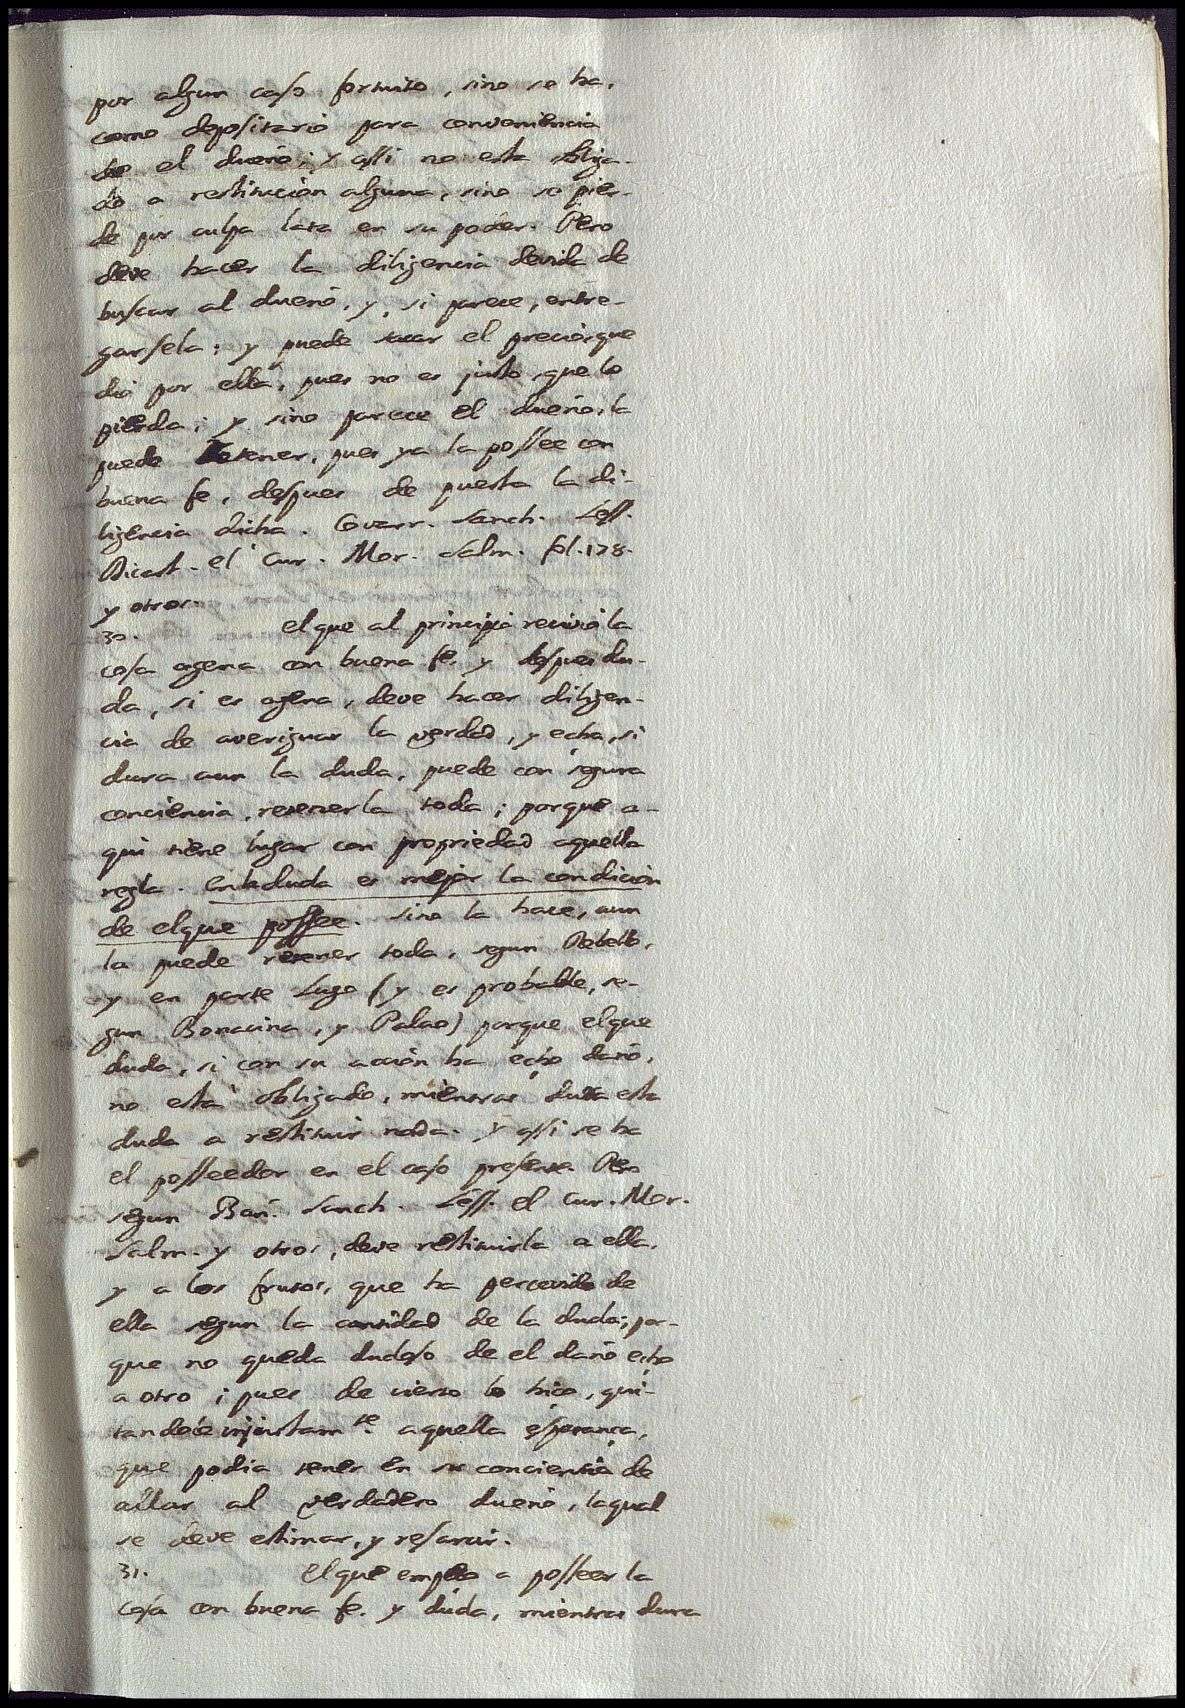 por algun caso fortuito, sino se ha,
como depositario para conveniencia
de el dueño; y assi no esta obliga-
do a restitucion alguna, sino se pier-
de por culpa lata en su poder. Pero
deve hacer la diligencia devida de
buscar al dueño, y, si parece, entre-
garsela; y puede sacar el precio, que
dio por ella, pues no es justo, que lo
pierda; y sino parece el dueño, la
puede retener, pues ya la possee con
buena fe, despues de puesta la di-
ligencia dicha. Covarr. Sanch. Less.
Dicast. el Cur. Mor. Salm. fol. 178.
y otros.
30. el que al principio recivio la
cosa agena con buena fe, y despues du-
da, si es agena, deve hacer diligen-
cia de averiguar la verdad, y echa, si
dura aun la duda, puede con segura
conciencia, retenerla toda; porque a-
qui tiene lugar con propriedad aquella
regla. en la duda es mejor la condicion
de el que possee. sino la hace, aun
la puede retener toda, segun Rebello,
y en parte Lugo (y es probable, se-
gun Bonacina, y Palao) porque el que
duda, si con su accion ha echo daño,
no esta obligado, mientras dura esta
duda a restituir nada. y assi se ha
el posseedor en el caso presente. Pero
segun Bañ. Sanch. Less. el Cur. Mor.
Salm. y otros, deve restituirla a ella,
y a los frutos, que ha percevido de
ella segun la cantidad de la duda; por-
que no queda dudoso de el daño echo
a otro; pues de cierto lo hiço, qui-
tandole injustam.te aquella esperança,
que podia tener en su conciencia de
allar al verdadero dueño, la qual
se deve estimar, y resarcir.
31. el que empeço a posseer la
cosa con buena fe, y duda, mientras dura